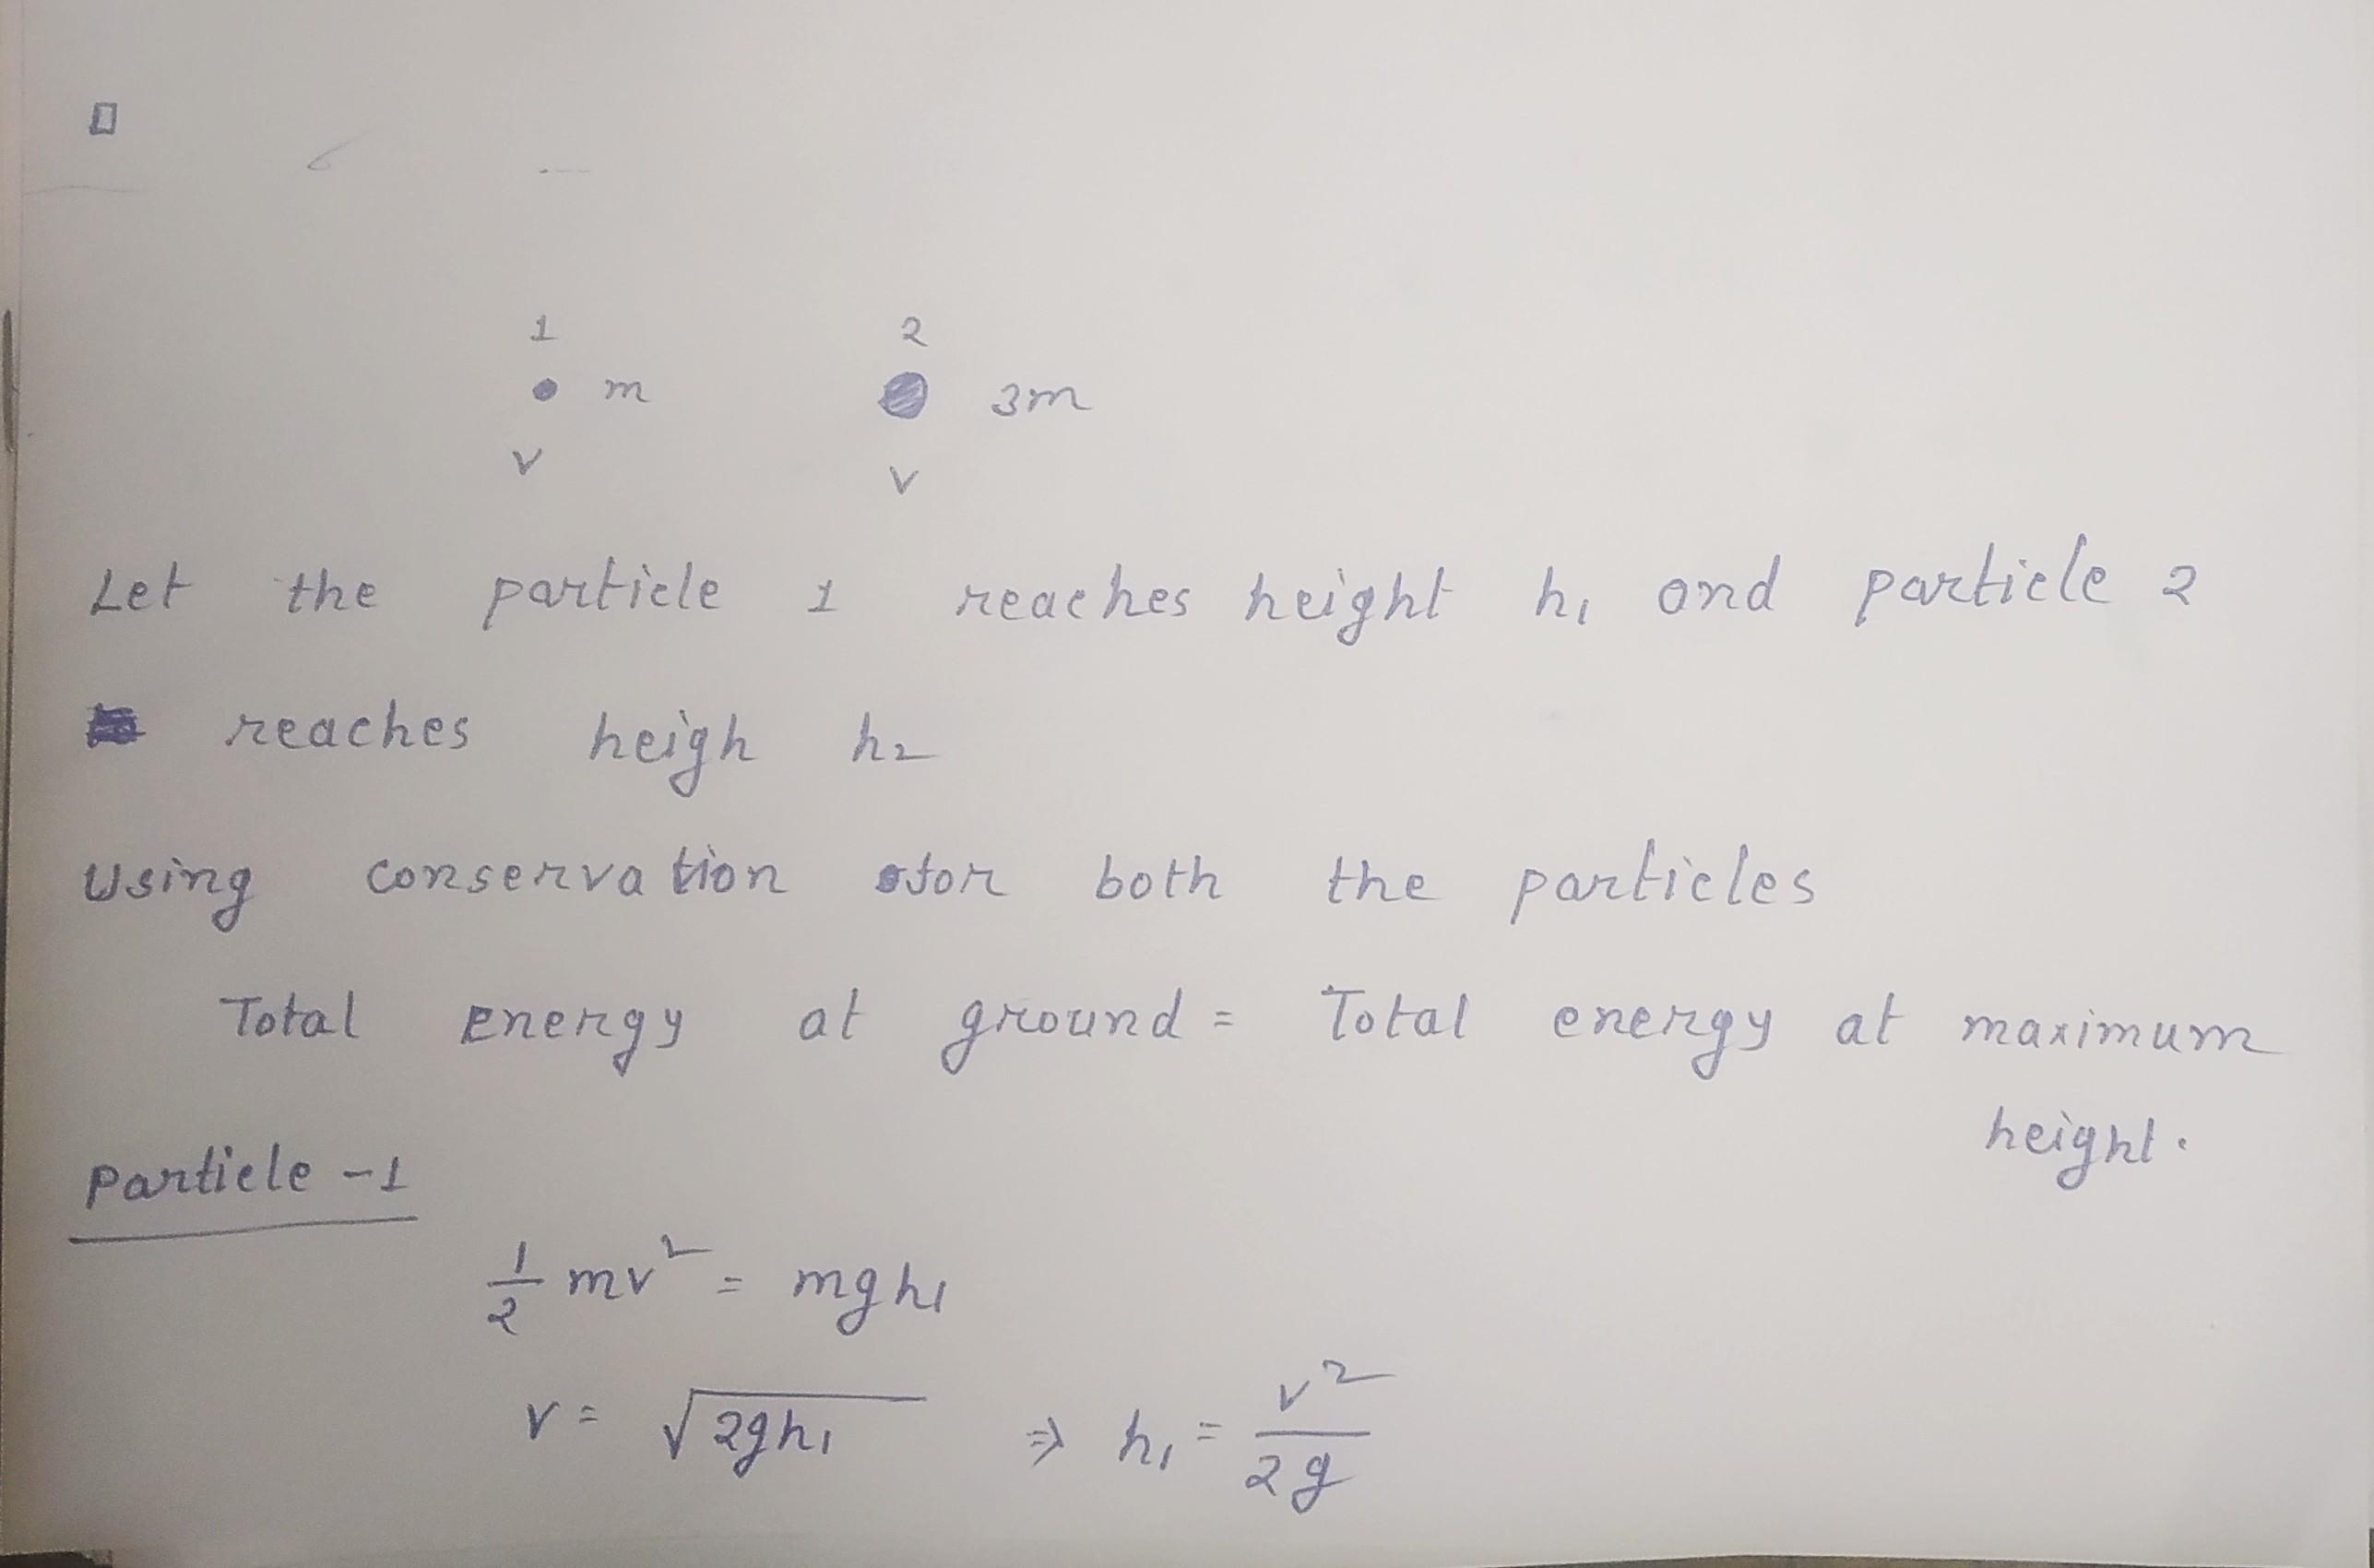 1 2
m 3m
v v
Let the particle 1 reaches height h₁ and particle 2
reaches heigh h₂
Using conservation for both the particles
Total Energy at ground = Total energy at maximum
height.
Particle -1
1/2 mv² = mgh₁
v = √2gh₁ ⇒ h₁ = v²/2g